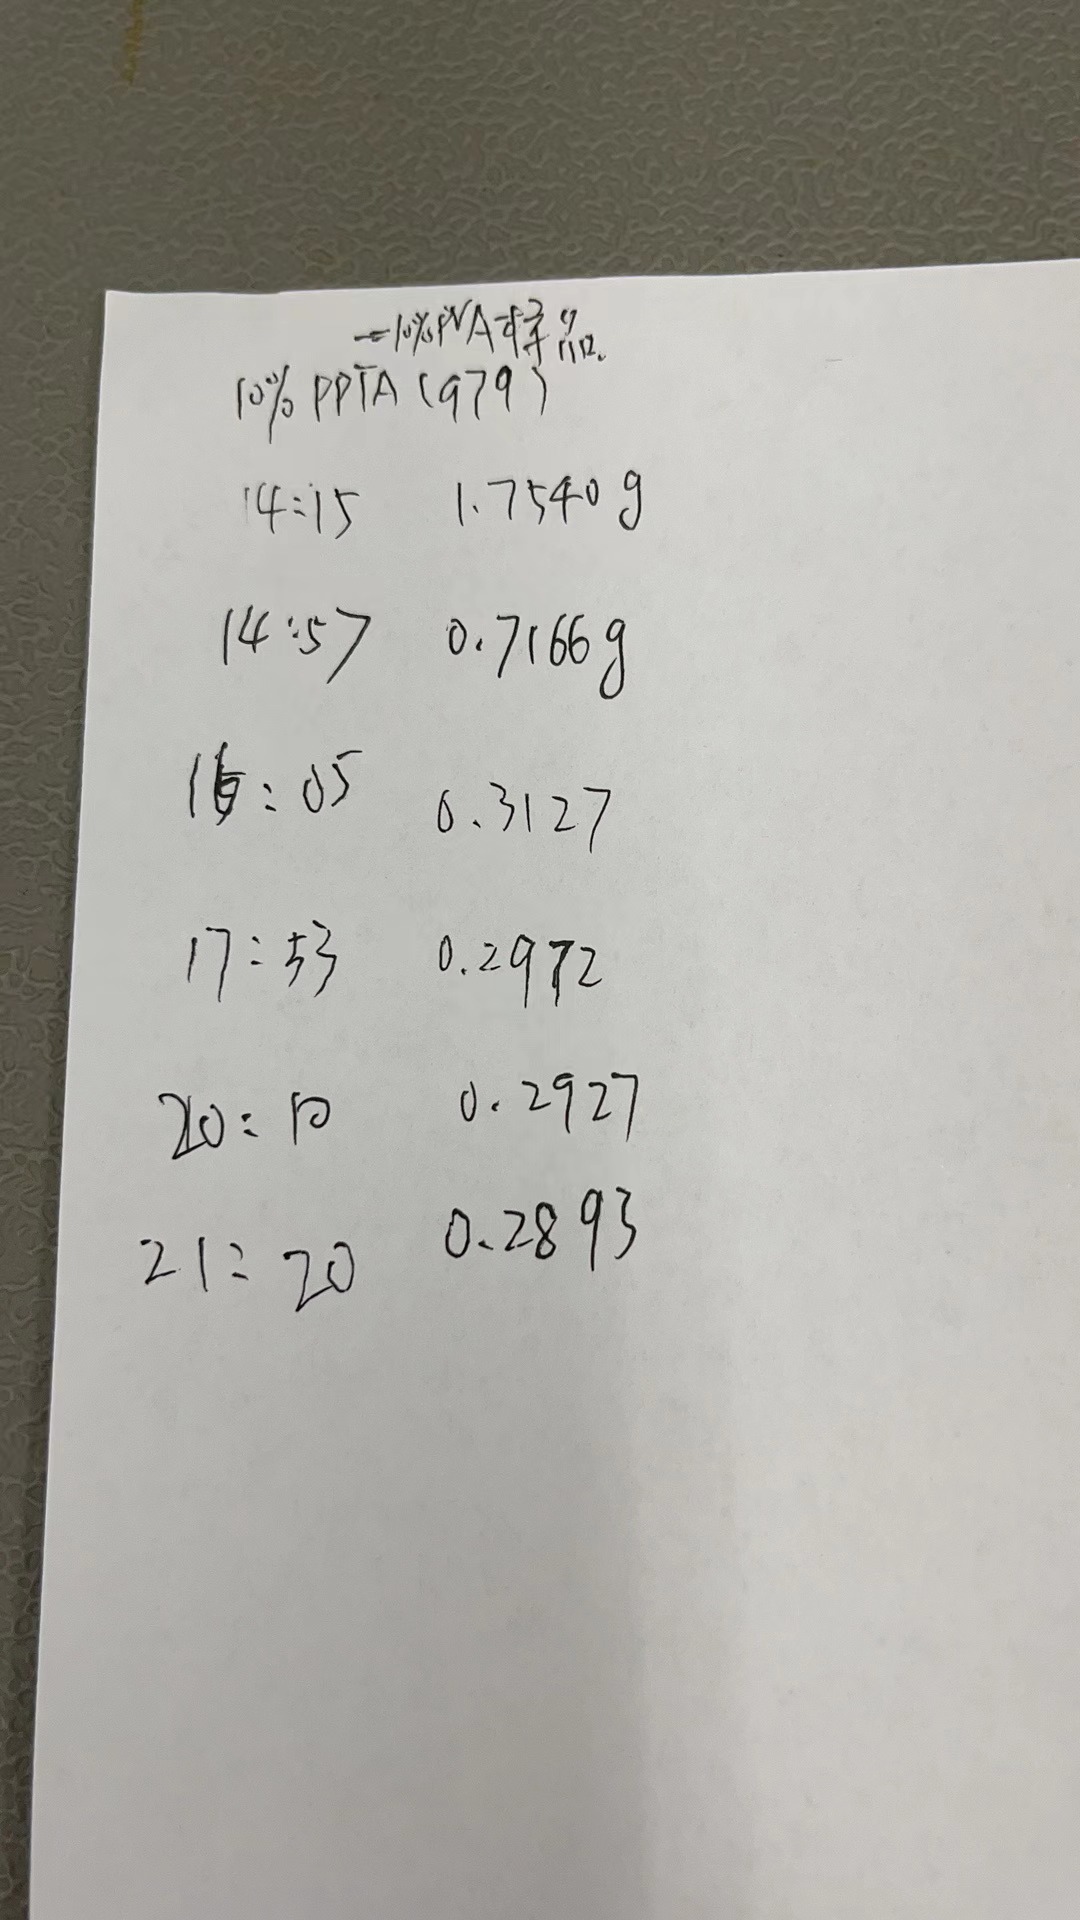 -10%PVA样品.
10% PPTA (979)
14:15 1.7540g
14:57 0.7166g
16:05 0.3127
17:53 0.2972
20:10 0.2927
21:20 0.2893